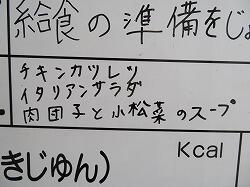 給食の準備をじ
チキンカツレツ
イタリアンサラダ
肉団子と小松菜のスープ
Kcal
きじゅん)